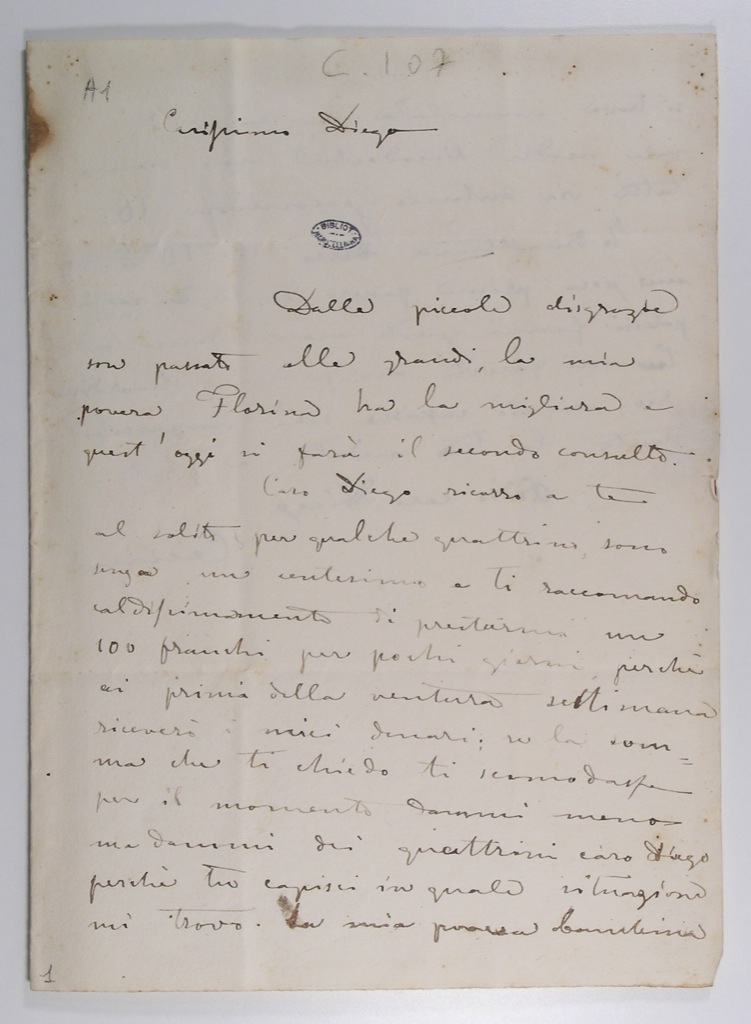 C. 107
A1
Carissimo Diego
BIBLIOT
MARUCELLIANA
Dalle piccole disgrazie
son passato alle grandi, la mia
povera Florina ha la migliara e
quest'oggi si farà il secondo consulto.
Caro Diego ricorro a te
al solito per qualche quattrino, sono
senza un centesimo e ti raccomando
caldissimamente di prestarmi un
100 franchi per pochi giorni, perchè
ai primi della ventura settimana
riceverò i miei denari; se la som=
ma che ti chiedo ti scomodasse
per il momento dammi meno
ma dammi dei quattrini caro Diego
perchè tu capisci in quale situazione
mi trovo. La mia povera bambina
1